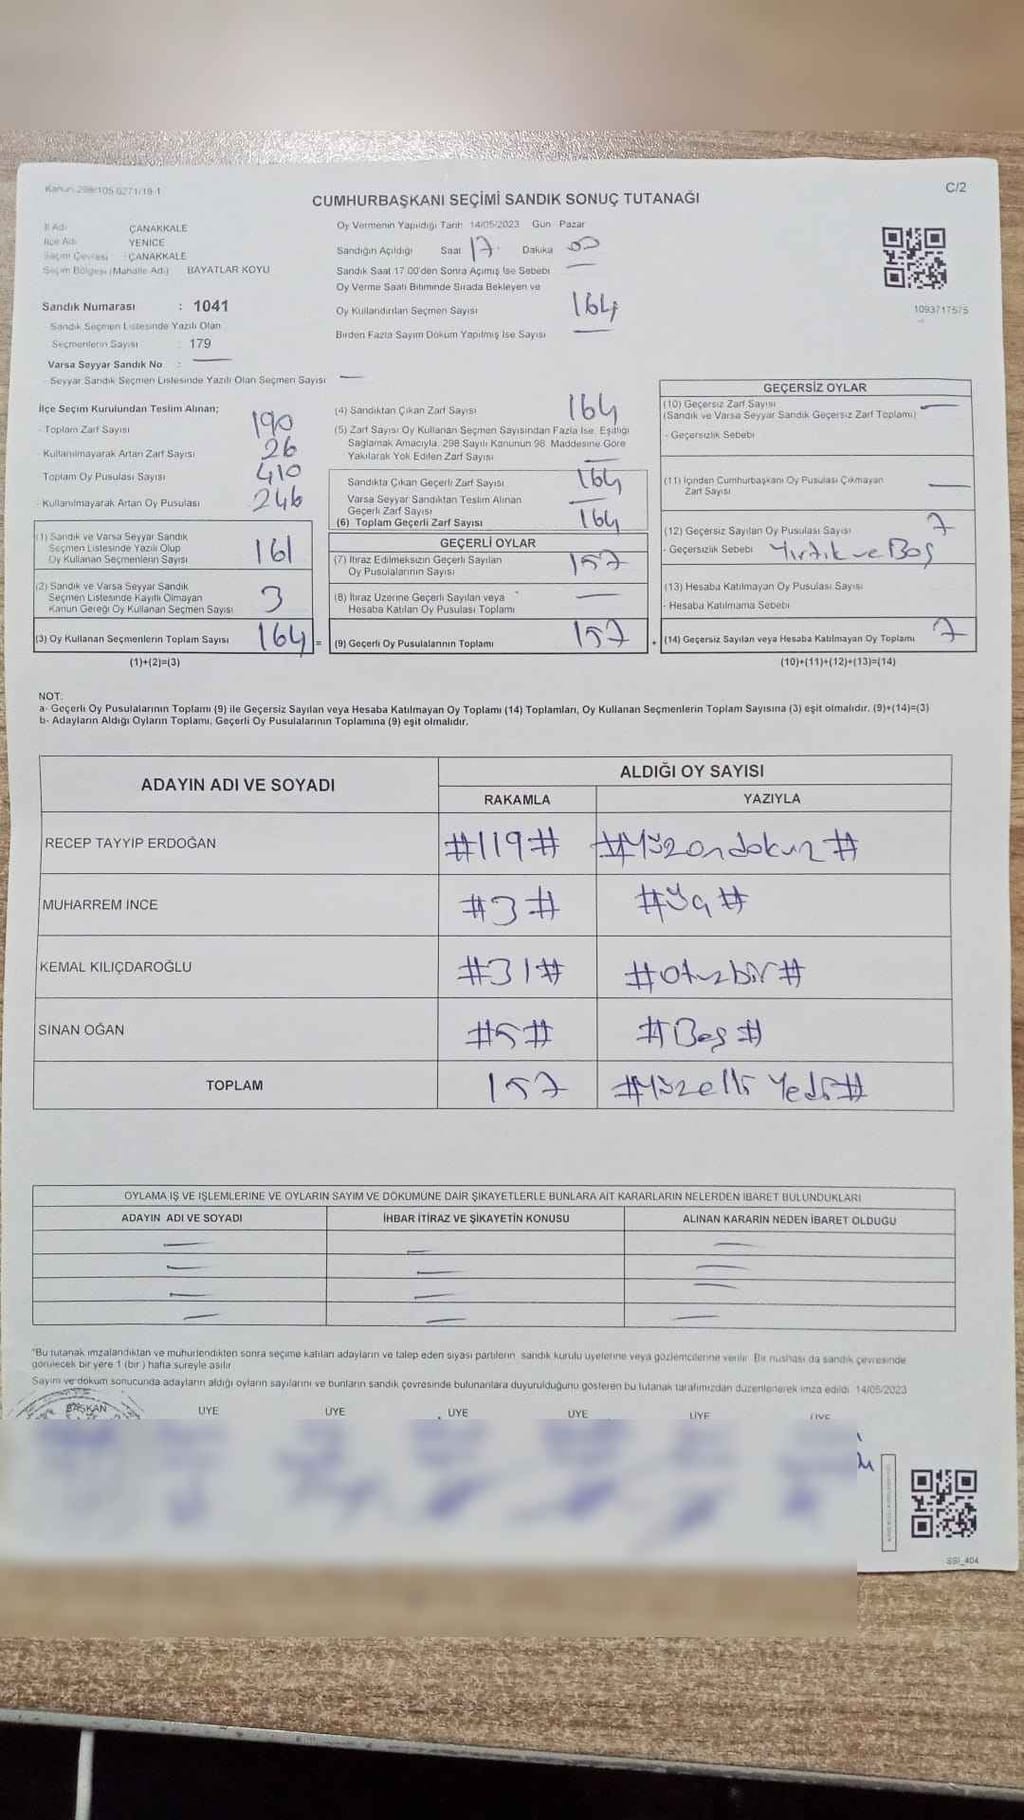 Kanun 298/105 0271/19-1
C/2
CUMHURBAŞKANI SEÇİMİ SANDIK SONUÇ TUTANAĞI
İl Adı ÇANAKKALE
İlçe Adı YENİCE
Seçim Çevresi : ÇANAKKALE
Seçim Bölgesi (Mahalle Adı) BAYATLAR KÖYÜ
Sandık Numarası : 1041
- Sandık Seçmen Listesinde Yazılı Olan
Seçmenlerin Sayısı : 179
Varsa Seyyar Sandık No :
- Seyyar Sandık Seçmen Listesinde Yazılı Olan Seçmen Sayısı
Oy Vermenin Yapıldığı Tarih 14/05/2023 Gün Pazar
Sandığın Açıldığı Saat 17 Dakika 00
Sandık Saat 17.00'den Sonra Açılmış İse Sebebi
Oy Verme Saati Bitiminde Sırada Bekleyen ve
Oy Kullandırılan Seçmen Sayısı 164
Birden Fazla Sayım Döküm Yapılmış İse Sayısı
1093717575
İlçe Seçim Kurulundan Teslim Alınan;
- Toplam Zarf Sayısı 190
- Kullanılmayarak Artan Zarf Sayısı 26
Toplam Oy Pusulası Sayısı 410
- Kullanılmayarak Artan Oy Pusulası 246
(1) Sandık ve Varsa Seyyar Sandık
Seçmen Listesinde Yazılı Olup
Oy Kullanan Seçmenlerin Sayısı 161
(2) Sandık ve Varsa Seyyar Sandık
Seçmen Listesinde Kayıtlı Olmayan
Kanun Gereği Oy Kullanan Seçmen Sayısı 3
(3) Oy Kullanan Seçmenlerin Toplam Sayısı 164 =
(1)+(2)=(3)
(4) Sandıktan Çıkan Zarf Sayısı 164
(5) Zarf Sayısı Oy Kullanan Seçmen Sayısından Fazla İse, Eşitliği
Sağlamak Amacıyla, 298 Sayılı Kanunun 98. Maddesine Göre
Yakılarak Yok Edilen Zarf Sayısı
Sandıkta Çıkan Geçerli Zarf Sayısı 164
Varsa Seyyar Sandıktan Teslim Alınan
Geçerli Zarf Sayısı
(6) Toplam Geçerli Zarf Sayısı 164
GEÇERLİ OYLAR
(7) İtiraz Edilmeksizin Geçerli Sayılan
Oy Pusulalarının Sayısı 157
(8) İtiraz Üzerine Geçerli Sayılan veya
Hesaba Katılan Oy Pusulası Toplamı
(9) Geçerli Oy Pusulalarının Toplamı 157 +
GEÇERSİZ OYLAR
(10) Geçersiz Zarf Sayısı
(Sandık ve Varsa Seyyar Sandık Geçersiz Zarf Toplamı)
- Geçersizlik Sebebi
(11) İçinden Cumhurbaşkanı Oy Pusulası Çıkmayan
Zarf Sayısı
(12) Geçersiz Sayılan Oy Pusulası Sayısı 7
- Geçersizlik Sebebi Yırtık ve Boş
(13) Hesaba Katılmayan Oy Pusulası Sayısı
- Hesaba Katılmama Sebebi
(14) Geçersiz Sayılan veya Hesaba Katılmayan Oy Toplamı 7
(10)+(11)+(12)+(13)=(14)
NOT:
a- Geçerli Oy Pusulalarının Toplamı (9) ile Geçersiz Sayılan veya Hesaba Katılmayan Oy Toplamı (14) Toplamları, Oy Kullanan Seçmenlerin Toplam Sayısına (3) eşit olmalıdır. (9)+(14)=(3)
b- Adayların Aldığı Oyların Toplamı, Geçerli Oy Pusulalarının Toplamına (9) eşit olmalıdır.
ADAYIN ADI VE SOYADI ALDIĞI OY SAYISI
RAKAMLA YAZIYLA
RECEP TAYYIP ERDOĞAN #119# #Yüzondokuz#
MUHARREM İNCE #3# #Üç#
KEMAL KILIÇDAROĞLU #31# #otuzbir#
SİNAN OĞAN #5# #Beş#
TOPLAM 157 #Yüzelli Yedi#
OYLAMA İŞ VE İŞLEMLERİNE VE OYLARIN SAYIM VE DÖKÜMÜNE DAİR ŞİKAYETLERLE BUNLARA AİT KARARLARIN NELERDEN İBARET BULUNDUKLARI
ADAYIN ADI VE SOYADI İHBAR İTİRAZ VE ŞİKAYETİN KONUSU ALINAN KARARIN NEDEN İBARET OLDUĞU
*Bu tutanak imzalandıktan ve mühürlendikten sonra seçime katılan adayların ve talep eden siyasi partilerin sandık kurulu üyelerine veya gözlemcilerine verilir. Bir nushası da sandık çevresinde
görülecek bir yere 1 (bir) hafta süreyle asılır.
Sayım ve döküm sonucunda adayların aldığı oyların sayılarını ve bunların sandık çevresinde bulunanlara duyurulduğunu gösteren bu tutanak tarafımızdan düzenlenerek imza edildi. 14/05/2023
BAŞKAN ÜYE ÜYE ÜYE ÜYE ÜYE ÜYE
SSİ_404